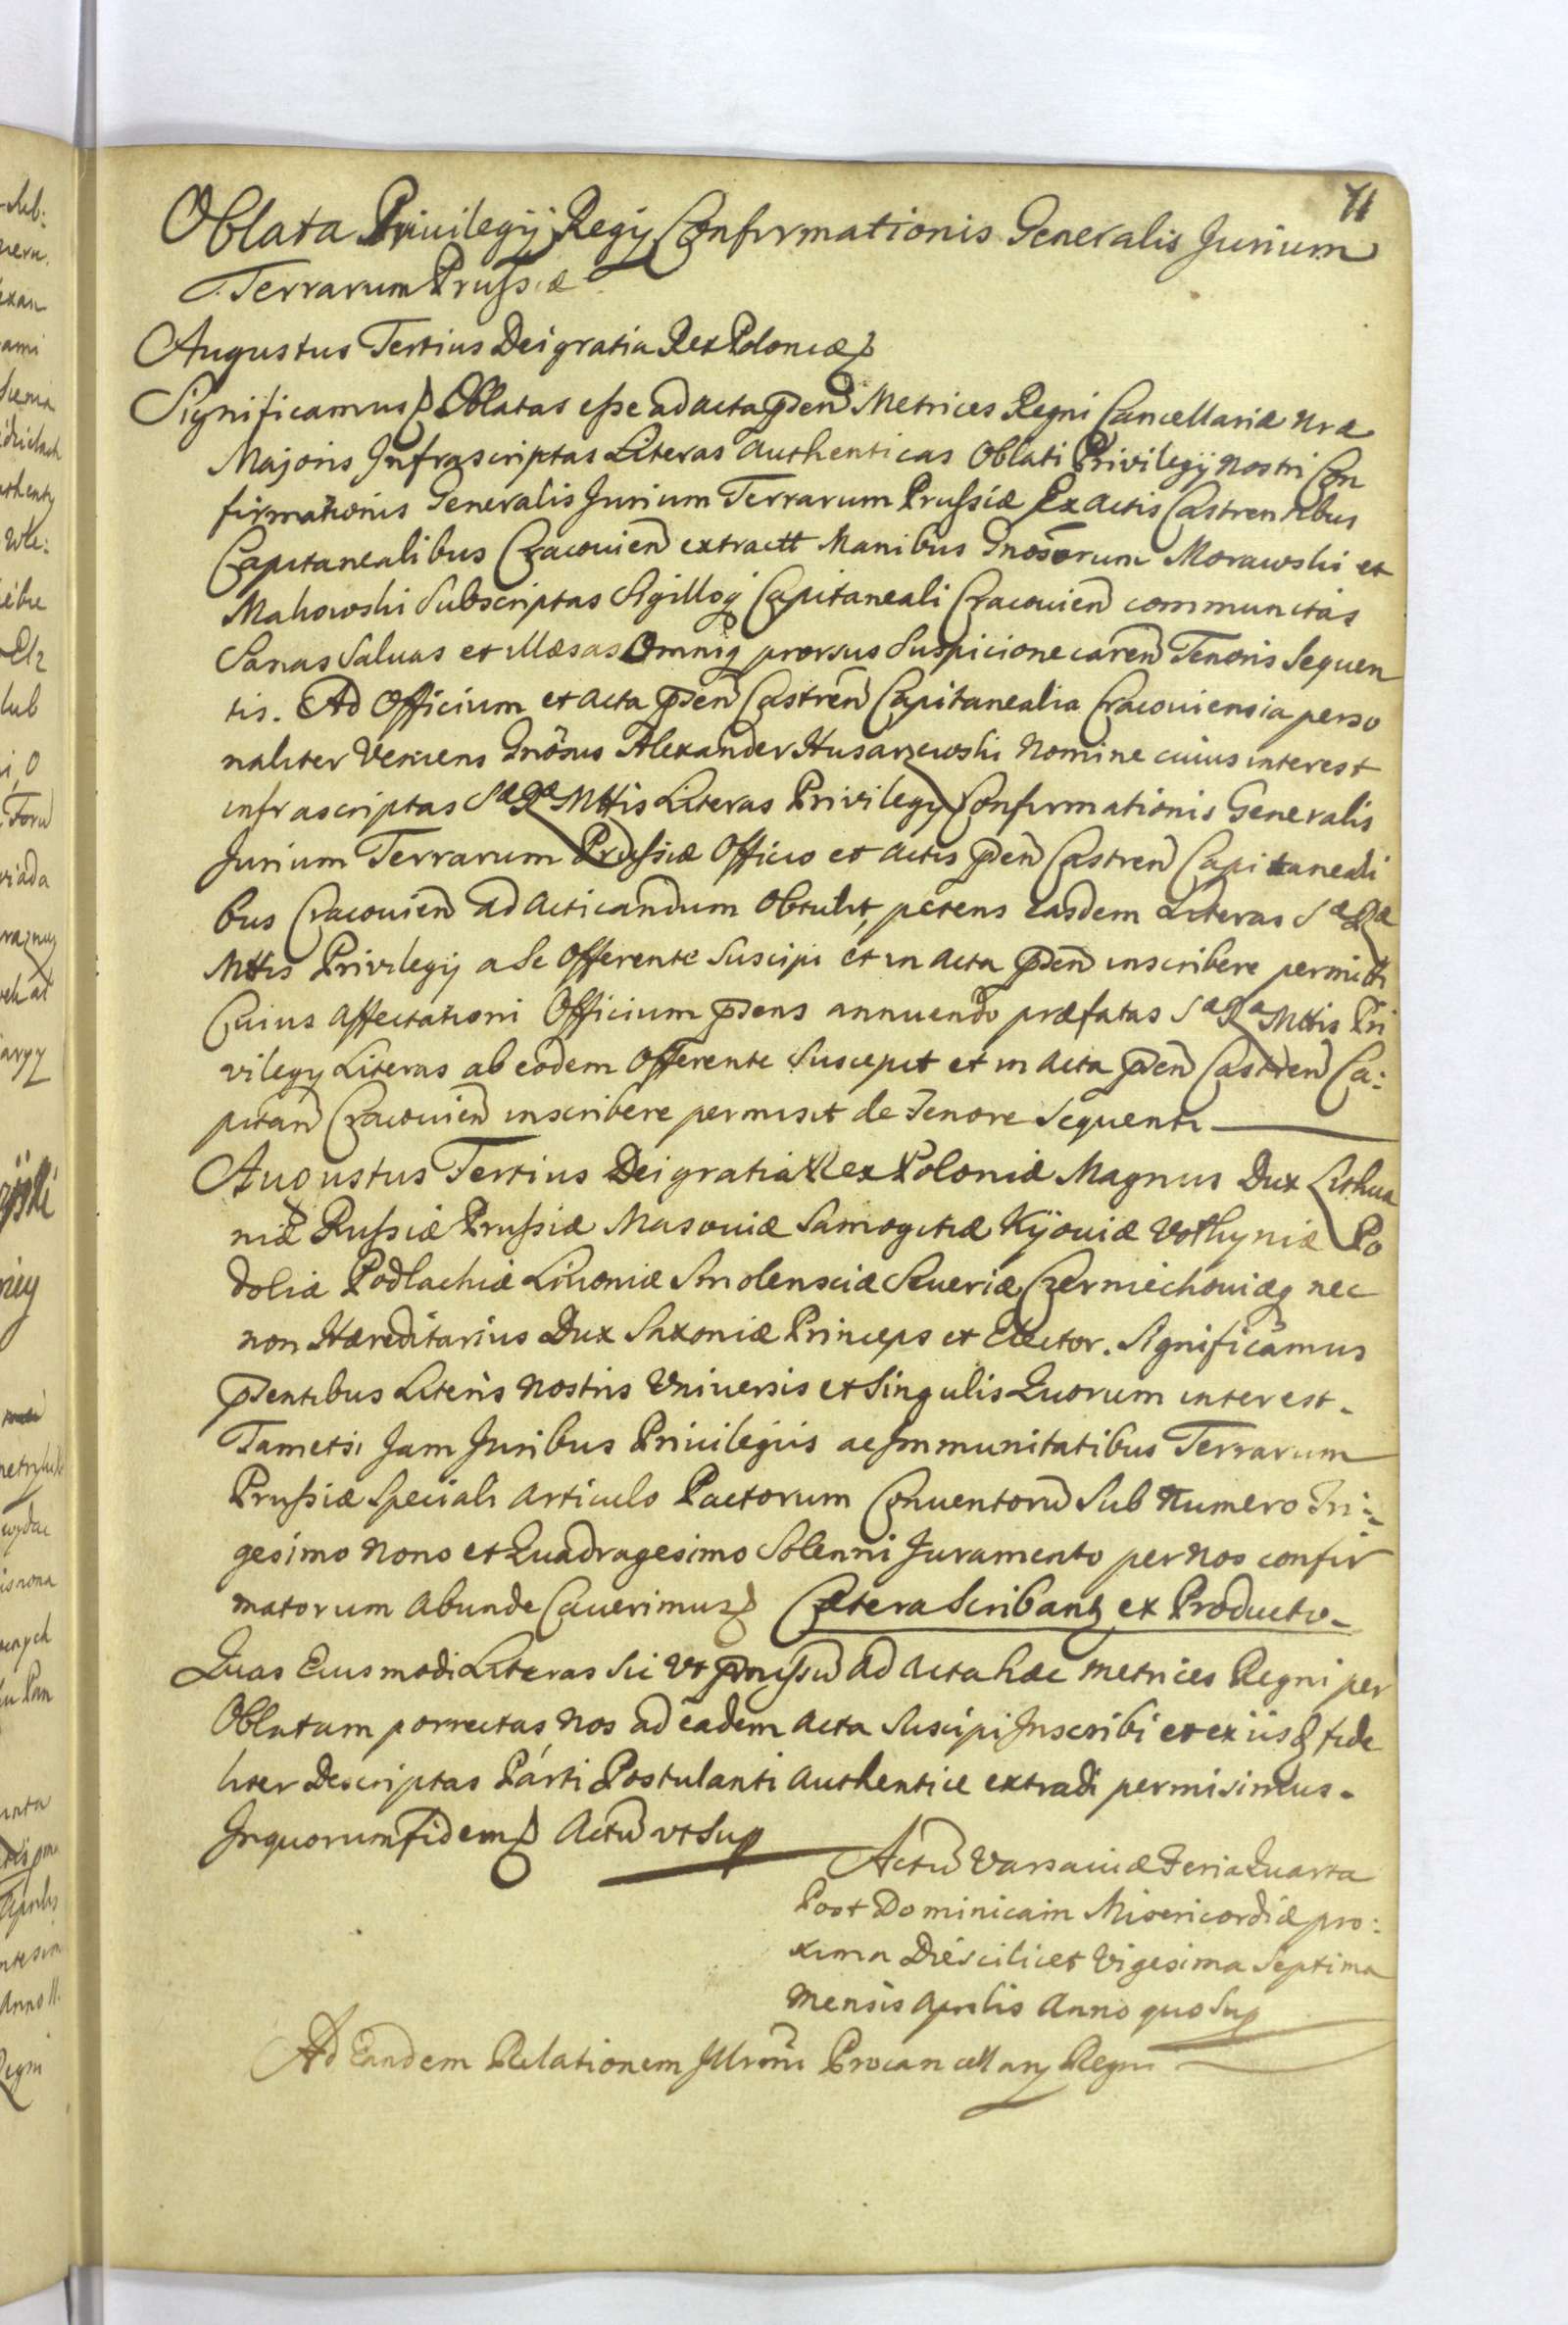 71
Oblata Privilegij Regij Confirmationis Generalis Jurium
Terrarum Prussiæ
Augustus Tertius Dei gratia Rex Poloniæ
Significamus Oblatas esse ad acta pñen Metrices Regni Cancellariæ nræ
Majoris Infrascriptas Literas authenticas Oblati Privilegij nostri Con
firmationis Generalis Jurium Terrarum Prussiæ Ex actis Castrensibus
Capitanealibus Cracouien extractt Manibus Gnosorum Morawski et
Makowski Subscriptas Sigilloq Capitaneali Cracouien communitas
Sanas Saluas et illæsas Omniq prorsus Suspicione caren Tenoris Sequen
tis. Ad Officium et acta pñen Castren Capitanealia Cracouiensia perso
naliter Veniens Gnosus Alexander Husarzewski Nomine cuius interest
infrascriptas Sæ Ræ Mttis Literas Privilegij Confirmationis Generalis
Jurium Terrarum Prussiæ Officio et actis pñen Castren Capitaneali
bus Cracouien ad acticandum Obtulit, petens easdem Literas Sæ Ræ
Mttis Privilegij a Se Offerente Suscipi et in acta pñen inscribere permitti
Cuius affectationi Officium pñens annuendo præfatas Sæ Ræ Mttis Pri
vilegij Literas ab eodem Offerente Suscepit et in acta pñen Castren Ca:
pitan Cracouien inscribere permisit de Tenore Sequenti
Augustus Tertius Dei gratia Rex Poloniæ Magnus Dux Lithua
niæ Russiæ Prussiæ Masouiæ Samogitiæ Kijouiæ Volhyniæ Po
doliæ Podlachiæ Liuoniæ Smolensciæ Seueriæ Czerniechouiæq nec
non Hæreditarius Dux Saxoniæ Princeps et Elector. Significamus
pñentibus Literis nostris Vniuersis et Singulis Quorum interest.
Tametsi Jam Juribus Priuilegiis ac Immunitatibus Terrarum
Prussiæ Speciali articulo Pactorum Conuentoru Sub Numero Tri:
gesimo nono et Quadragesimo Solenni Juramento per nos confir
matorum abunde Cauerimus Cætera Scribantq ex Producto.
Quas Eiusmodi Literas Sic Vt pmissu ad acta hæc metrices Regni per
Oblatam porrectas, nos ad eadem acta Suscipi Inscribi et ex iisq fide
liter Descriptas Parti Postulanti authentice extradi permisimus.
In quorum fidem Actu vt Sup
Actu Varsauiæ Feria Quarta
Post Dominicam Misericordiæ pro:
xima Die scilicet Vigesima Septima
Mensis Aprilis Anno quo Sup
Ad Eandem Relationem Illrmi Procancellarij Regni